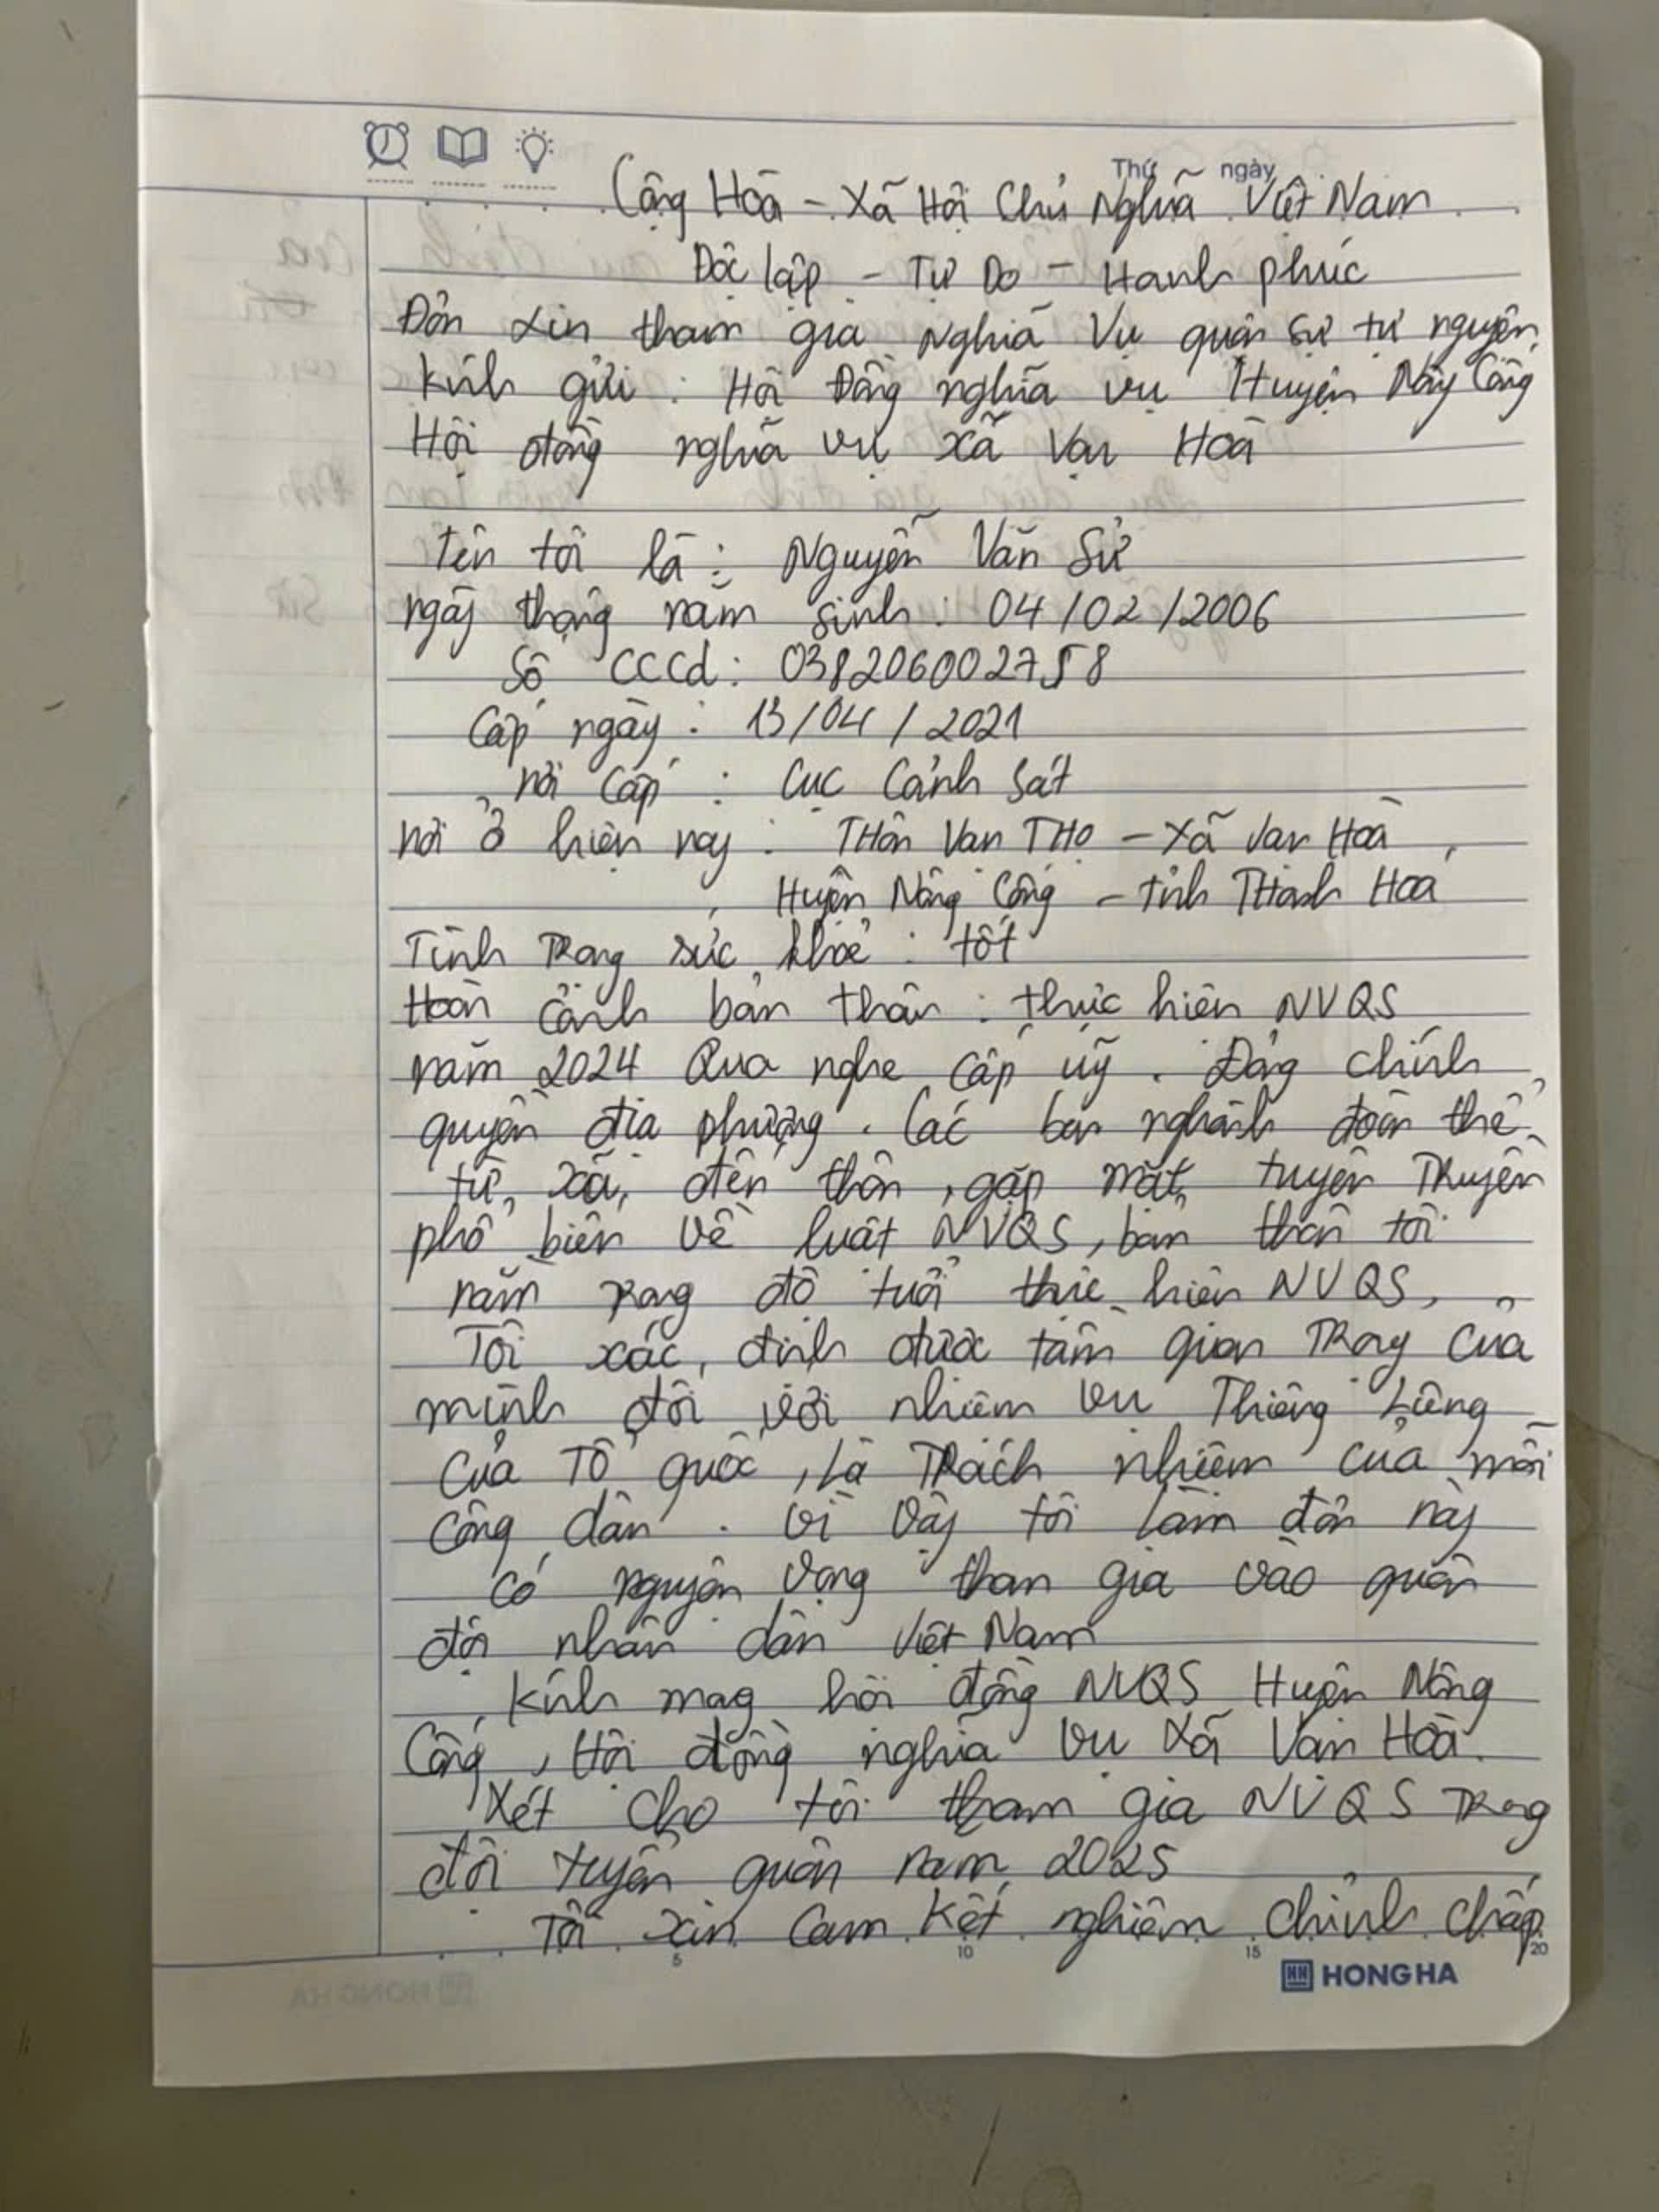 Thứ ngày
Cộng Hoà - Xã Hội Chủ Nghĩa Việt Nam
Độc lập - Tự Do - Hanh phúc
Đơn xin tham gia nghĩa Vụ quân sự tự nguyện
kính gửi : Hội Đồng nghĩa vụ Huyện Nông Cống
Hội đồng nghĩa vụ xã Vạn Hoà
tên tôi là : Nguyễn Văn Sử
ngày tháng năm sinh : 04/02/2006
Số CCCd : 038206002758
Cấp ngày : 13/04/2021
nơi Cấp : Cục Cảnh Sát
nơi ở hiện nay : THôn Van THọ - Xã Van Hoà,
Huyện Nông Cống - tỉnh THanh Hoá
Tình Trang sức khoẻ : tốt
Hoàn cảnh bản thân : thực hiên NVQS
năm 2024 Qua nghe Cấp uỹ . Đảng chính
quyền địa phương . Các ban nghành đoàn thể
từ xã, đến thôn, gặp mặt, tuyên Truyền
phổ biến về luật NVQS, bản thân tôi
nằm trong độ tuổi thưc hiên NVQS,
Tôi xác định được tầm quan Trong Của
mình đối với nhiêm vu Thiêng Liêng
Của Tổ quốc, Là Trách nhiêm của mỗi
Công dân . Vì Vậy tôi Làm đơn này
Có nguyện Vọng tham gia vào quân
đội nhân dân Việt Nam
Kính mong hội đồng NVQS Huyện Nông
Cống, Hội đồng nghĩa vụ Xã Vạn Hoà.
Xét Cho tôi tham gia NVQS Trong
đợt tuyển quân năm 2025
Tôi xin Cam Kết nghiêm chỉnh chấp
5 10 15 20
HONG HA